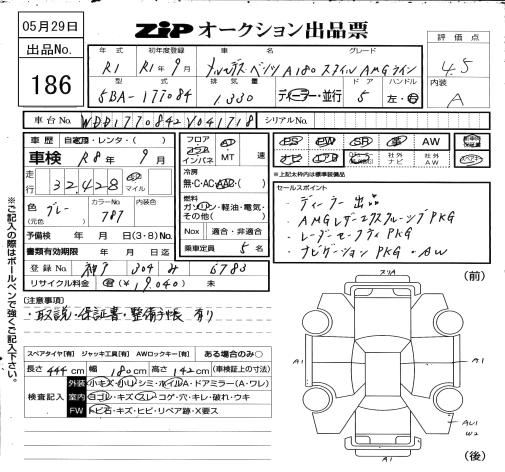 05月29日
ZIP オークション出品票
出品No.
186
評価点
4.5
内装
A
年式 初年度登録 車名 グレード
R1 R1年9月 メルセデス・ベンツ A180 スタイル AMGライン
型式 排気量 ドア ハンドル
5BA-177084 1,330 ディーラー・並行 5 左・右
車台No. WDD1770842V041718 シリアルNo.
車歴 自家用・レンタ・( )
車検 R8年9月
走行 32,428 km マイル
色 (元色) グレー カラーNo. 787 内装色
予備検 年 月 日 (3・8) No.
書類有効期限 年 月 日迄
登録No. 神戸 304 み 6783
リサイクル料金 有 (¥19,040) 未
フロア コラム インパネ AT MT 速
冷房 無・C・AC・AAC・( )
燃料 ガソリン・軽油・電気・その他( )
Nox 適合・非適合
乗車定員 5名
PS PW SR 革 AW
ナビ エアB 社外ナビ 社外AW
*上記太枠内は標準装備品
セールスポイント
・ディーラー出品
・AMGレザーエクスクルーシブPKG
・レーダーセーフティPKG
・ナビゲーションPKG ・AW
※ご記入の際はボールペンで強くご記入下さい。
(注意事項)
・取説・保証書・整備手帳 有り
スペアタイヤ【有】 ジャッキ工具【有】 AWロックキー【有】 ある場合のみ○
長さ 444cm 幅 180cm 高さ 142cm (車検証上の寸法)
検査記入
外装 小キズ・小凹・シミ・ホイルA・ドアミラー(A・ワレ)
室内 ヨゴレ・キズ・スレ・コゲ・穴・キレ・破れ・ウキ
FW トビ石・キズ・ヒビ・リペア跡・X要ス
(前)
スリA
A1
A1
AU1
W2
(後)